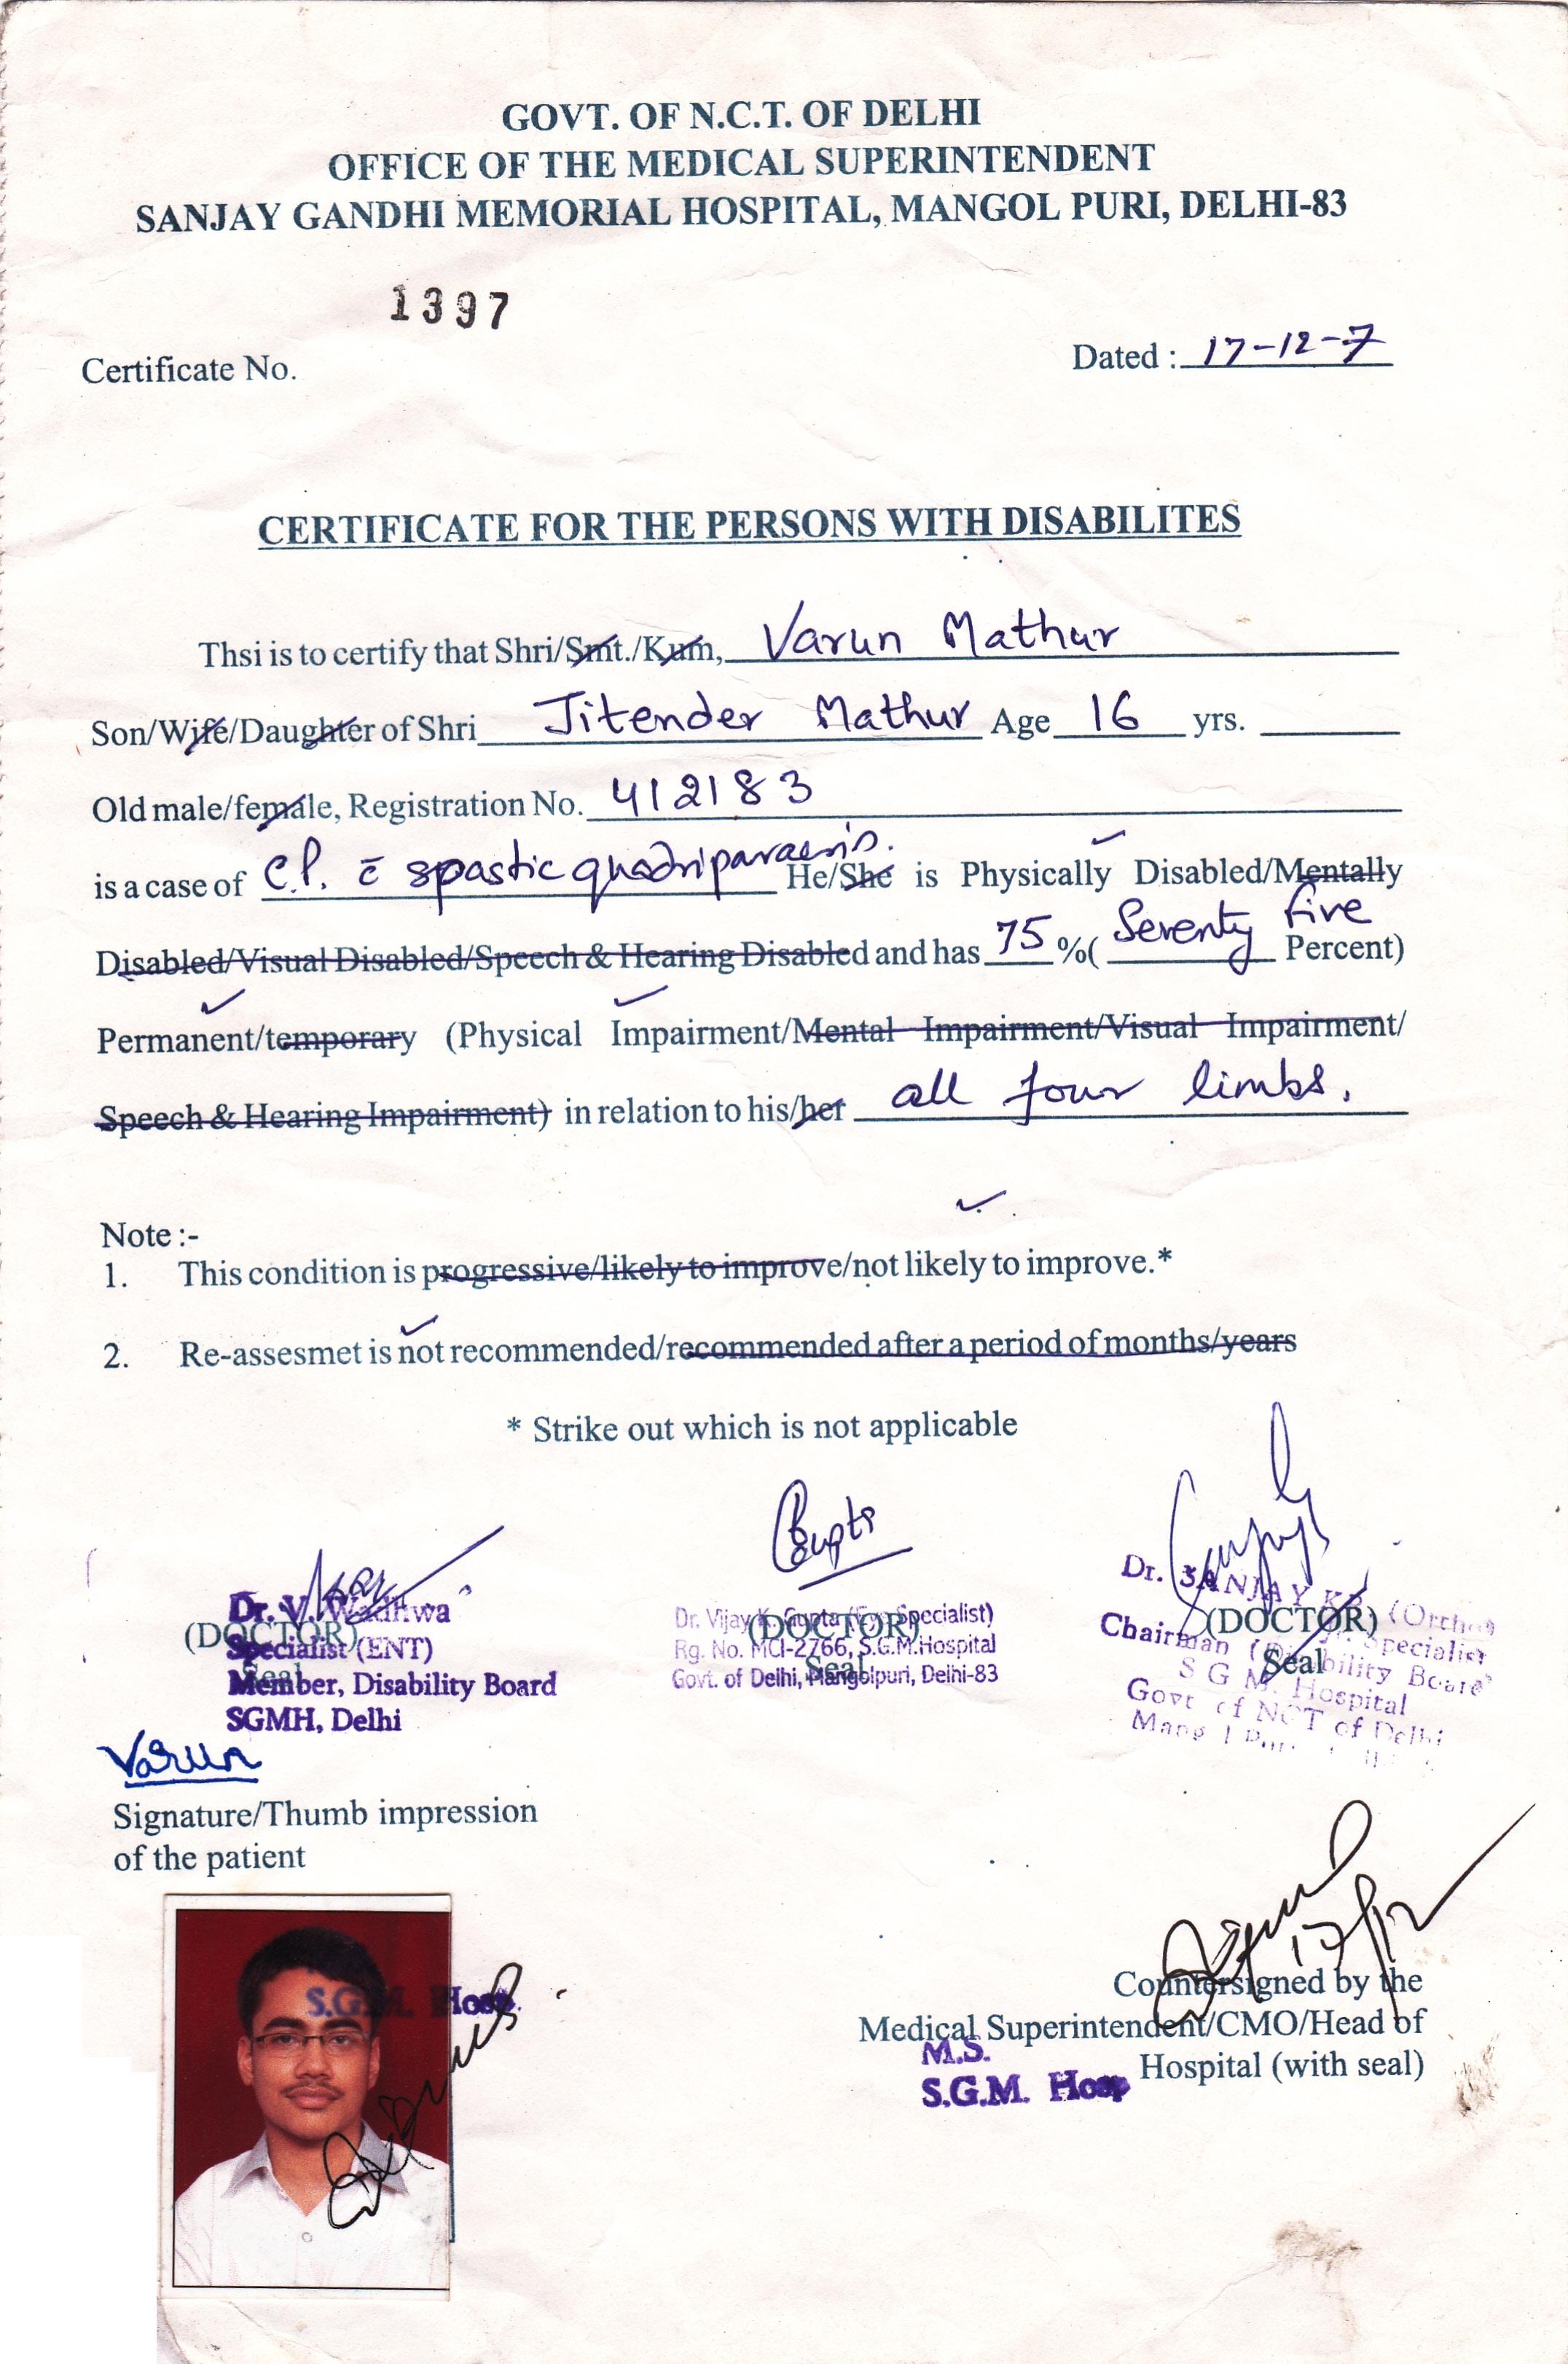 GOVT. OF N.C.T. OF DELHI
OFFICE OF THE MEDICAL SUPERINTENDENT
SANJAY GANDHI MEMORIAL HOSPITAL, MANGOL PURI, DELHI-83
1397
Certificate No.
Dated : 17-12-7
CERTIFICATE FOR THE PERSONS WITH DISABILITES
Thsi is to certify that Shri/Smt./Kum, Varun Mathur
Son/Wife/Daughter of Shri Jitender Mathur Age 16 yrs.
Old male/female, Registration No. 412183
is a case of C.P. c̄ spastic quadriparaesis. He/She is Physically Disabled/Mentally
Disabled/Visual Disabled/Speech & Hearing Disabled and has 75 % ( Seventy five Percent)
Permanent/temporary (Physical Impairment/Mental Impairment/Visual Impairment/
Speech & Hearing Impairment) in relation to his/her all four limbs.
Note :-
1. This condition is progressive/likely to improve/not likely to improve.*
2. Re-assesmet is not recommended/recommended after a period of months/years
* Strike out which is not applicable
Dr. V. Wadhwa
(DOCTOR)
Specialist (ENT)
Seal
Member, Disability Board
SGMH, Delhi
Gupta
Dr. Vijay K. Gupta (Eye Specialist)
(DOCTOR)
Rg. No. MCI-2766, S.G.M.Hospital
Seal
Govt. of Delhi, Mangolpuri, Delhi-83
Dr. SANJAY KR (Ortho)
(DOCTOR)
Specialist
Chairman (Disability Board)
Seal
S G M. Hospital
Govt of NCT of Delhi
Varun
Signature/Thumb impression
of the patient
S.G.M. Hosp.
17/12
Countersigned by the
Medical Superintendent/CMO/Head of
Hospital (with seal)
M.S.
S.G.M. Hosp